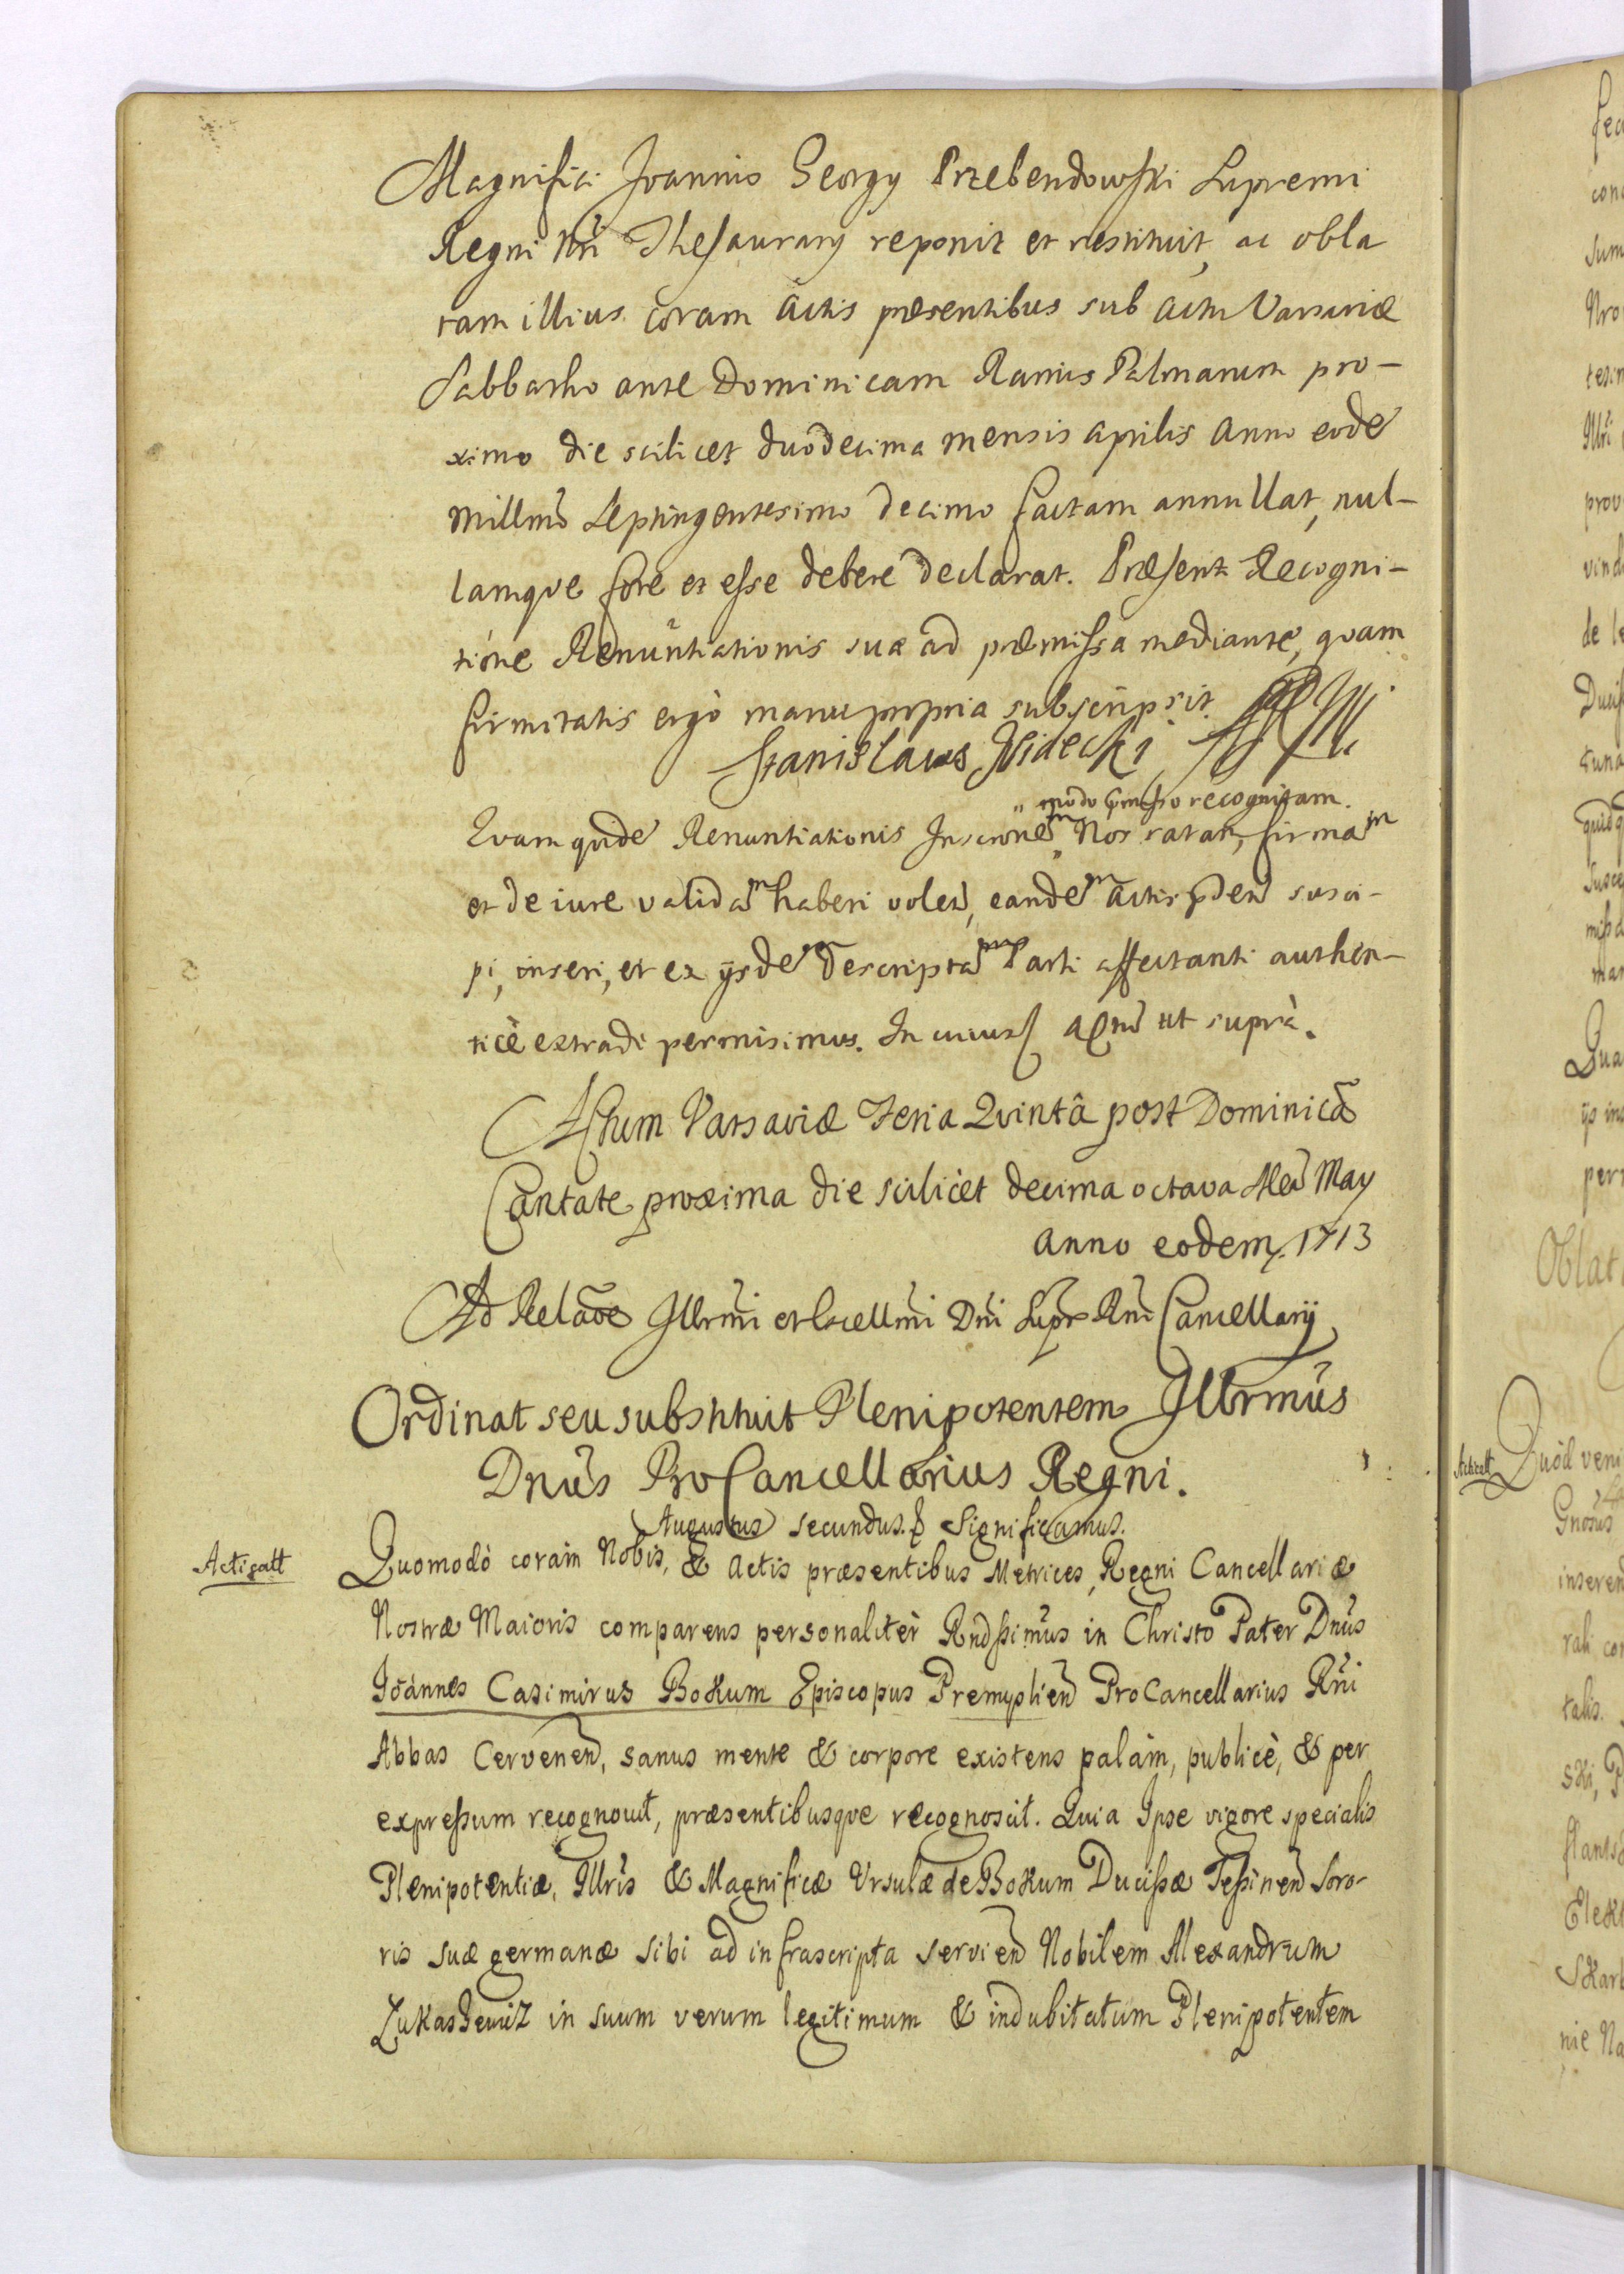 Magnifici Joannis Georgy Przebendowski Supremi
Regni Nri Thesaurarÿ reponit et restituit, ac obla
tam illius coram actis præsentibus sub actu Varsaviæ
Sabbatho ante Dominicam Ramis Palmarum pro-
ximo die scilicet duodecima mensis aprilis anno eode
millmo septingentesimo decimo factam annullat, nul-
lamque fore et esse debere declarat. Præsenti Recogni-
tione Renuntiationis suæ ad præmissa mediante, quam
firmitatis ergò manu propria subscripsit.
Stanislaus
modo præmisso recognitam.
Quam quidē Renuntiationis Inscrōnēm Nos ratam, firmam
et de iure validam haberi volen, eandem actis pden susci-
pi, inseri, et ex ÿsdem descriptam Parti affectanti authen-
ticè extradi permisimus. In cuius Actū ut suprà.
Actum Varsaviæ Feria Quintâ post Dominicā
Cantate proxima die scilicet decima octava Men May
anno eodem. 1713
Ad Relāōē Illrmi et Excellmi Dni Supr Rni Cancellarÿ
Ordinat seu substituit Plenipotentem Illrmus
Dnus ProCancellarius Regni.
Augustus secundus. & Significamus.
Acticatt
Quomodò coram Nobis, & Actis præsentibus Metrices, Regni Cancellariæ
Nostræ Maioris comparens personalitèr Rndssimus in Christo Pater Dnus
Ioannes Casimirus Bokum Episcopus Premyslien ProCancellarius Rni
Abbas Cervenen, sanus mente & corpore existens palàm, publicè, & per
expressum recognovit, præsentibusque recognoscit. Quia Ipse vigore specialis
Plenipotentiæ, Illris & Magnificæ Ursulæ de Bokum Ducissæ Tessinen Soro-
ris suæ germanæ sibi ad infrascripta servien Nobilem Alexandrum
Lukasiewicz in suum verum legitimum & indubitatum Plenipotentem